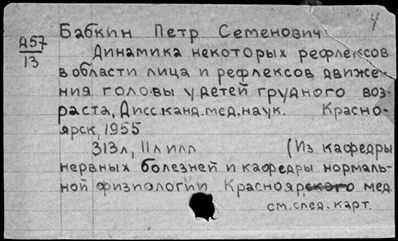 Бабкин Петр Семенович 4
А57
13
Динамика некоторых рефлексов
в области лица и рефлексов движе-
ния головы у детей грудного воз-
раста, Дисс. канд. мед. наук. Красно-
ярск, 1955
313 л, 11 л илл (Из кафедры
нервных болезней и кафедры нормаль-
ной физиологии Красноярского мед
см. след. карт.